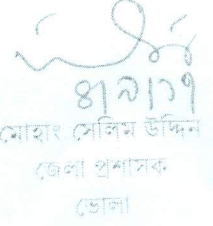 ৪/৯/১৭
মোহাং সেলিম উদ্দিন
জেলা প্রশাসক
ভোলা